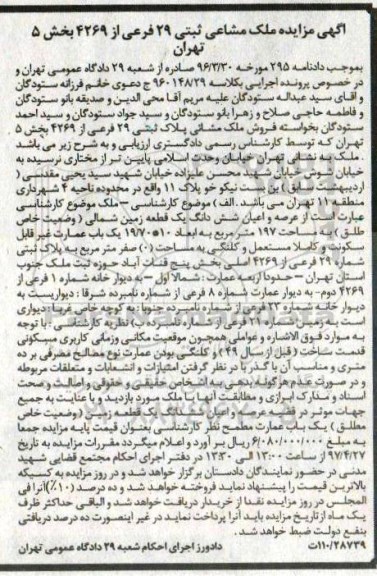 آگهی مزایده ملک مشاعی ثبتی ۲۹ فرعی از ۴۲۶۹ بخش ۵
تهران
بموجب دادنامه ۲۹۵ مورخه ۹۶/۳/۳۰ صادره از شعبه ۲۹ دادگاه عمومی تهران و
در خصوص پرونده اجرایی بکلاسه ۹۶۰۱۴۸/۲۹ ج دعوی خانم فرزانه ستودگان
و آقای سید عبداله ستودگان علیه مریم آقا محی الدین و صدیقه بانو ستودگان
و فاطمه حاجی صلاح و زهرا بانو ستودگان و سید جواد ستودگان و سید احمد
ستودگان بخواسته فروش ملک مشاعی پلاک ثبتی ۲۹ فرعی از ۴۲۶۹ بخش ۵
تهران که توسط کارشناس رسمی دادگستری ارزیابی و به شرح زیر می باشد
. ملک به نشانی تهران خیابان وحدت اسلامی پایین تر از مختاری نرسیده به
خیابان شوش خیابان شهید محسن علیزاده خیابان شهید سید یحیی مقدسی (
اردیبهشت سابق) بن بست نیکو خو پلاک ۱۱ واقع در محدوده ناحیه ۴ شهرداری
منطقه ۱۱ تهران می باشد. الف) موضوع کارشناسی – ملک موضوع کارشناسی
عبارت است از عرصه و اعیان شش دانگ یک قطعه زمین شمالی (وضعیت خاص
طلق) به مساحت ۱۹۷ متر مربع به ابعاد ۱۰*۱۹/۷۰ یک باب عمارت غیر قابل
سکونت و کاملا مستعمل و کلنگی به مساحت (۰) صفر متر مربع به پلاک ثبتی
شماره ۲۹ فرعی از ۴۲۶۹ اصلی بخش پنج قنات آباد حوزه ثبت ملک جنوب
استان تهران – حدود اربعه عمارت: شمالا اول – به دیوار خانه شماره ۱ فرعی از
۴۲۶۹ دوم- به دیوار عمارت شماره ۸ فرعی از شماره نامبرده شرقا: دیواریست به
دیوار خانه شماره ۲ فرعی از شماره نامبرده جنوبا: به کوچه خاص غربا: دیواری
است به زمین شماره ۲۸ فرعی از شماره نامبرده ب) نظریه کارشناسی: با توجه
به موارد فوق الاشاره و عواملی همچون موقعیت مکانی وزمانی کاربری مسکونی
قدمت ساخت (قبل از سال ۴۹) و کلنگی بودن عمارت نوع مصالح مصرفی بر ده
متری و مناسب آن با گذر با در نظر گرفتن امتیازات و انشعابات و متعلقات مربوطه
و در صورت عدم هرگونه بدهی به اشخاص حقیقی و حقوقی و اصالت و صحت
اسناد و مدارک ابرازی و مطابقت آنها با ملک مورد بازدید و با عنایت به جمیع
جهات موثر در قضیه عرصه و اعیان شش دانگ یک قطعه زمین (وضعیت خاص
مطلق) یک باب عمارت مطمح نظر کارشناسی بعنوان قیمت پایه مزایده جمعا
به مبلغ ۶/۰۸۰/۰۰۰/۰۰۰ ریال بر آورد و اعلام میگردد مقررات مزایده به تاریخ
۹۷/۴/۲۷ از ساعت ۱۳:۰۰ الی ۱۳:۳۰ در دفتر اجرای احکام مجتمع قضایی شهید
مدنی در حضور نمایندگان دادستان برگزار خواهد شد و در روز مزایده به کسیکه
بالاترین قیمت را پیشنهاد نماید فروخته خواهد شد و ده درصد (۱۰٪) آنرا فی
المجلس در روز مزایده نقدا از خریدار دریافت خواهد شد و الباقی حداکثر ظرف
یک ماه از تاریخ مزایده باید آنرا پرداخت نماید در غیر اینصورت ده درصد دریافتی
بنفع دولت ضبط خواهد شد.
۱۱۰/۲۸۷۳۹ت دادورز اجرای احکام شعبه ۲۹ دادگاه عمومی تهران